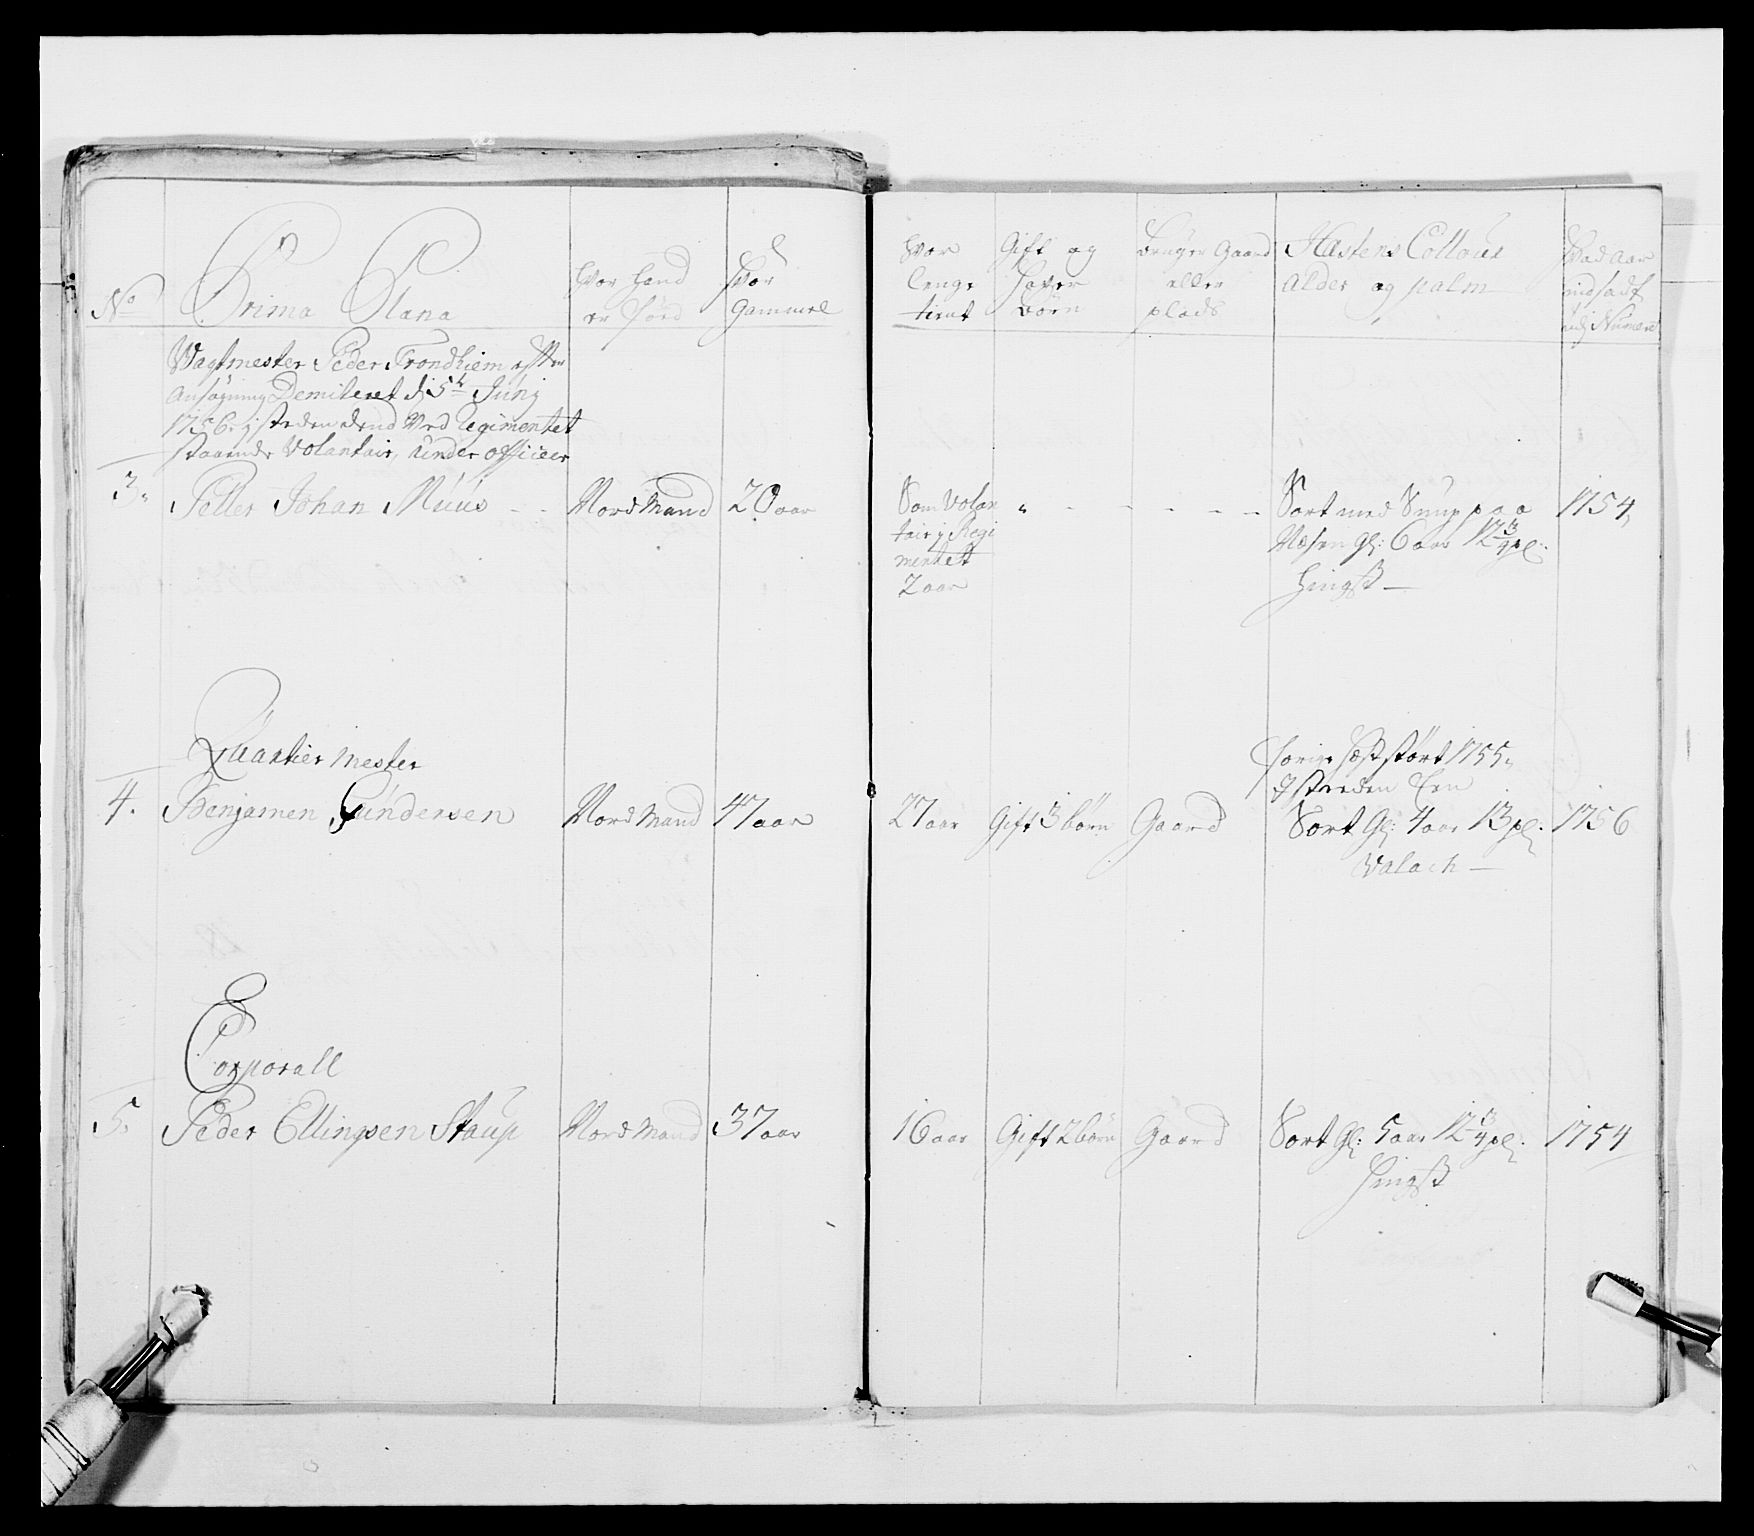 No
Prima Plana
hvor Land
er Föed
hvor
Gammel
hvor
lenge
tient
Gift og
haver
Börn
Bruger Gaard
eller
plads
Hæstens Colleur
alder og palm
hvad aar
indsadt
udj Numeret
Wagtmester Peder Trondhiem efter
ansøgning Demiteret d 5te Junj
1756, j steden dend Ved Regimentet
staaende Volontair, under officeer
3. Peller Johan Muus - - Nord Mand 20 aar
Som Volon
tair j Regi
mentet
2 aar
" - - - - -
Sort med Snup paa 1754,
Næsen gl: 6 aar 12 3/4 pl:
hingst —
Quartier mester
4. Benjamen Gundersen Nord Mand 47 aar
27 aar Gift 3 börn Gaard
forige hæst stört 1755,
J steeden Een
Sort Gl: 4 aar 13 pl: 1756
Valach —
Corporall
5. Peder Ellingsen Staup Nord Mand 37 aar
16 aar Gift 2 börn Gaard
Sort Gl: 5 aar 12 3/4 pl: 1754
hingst